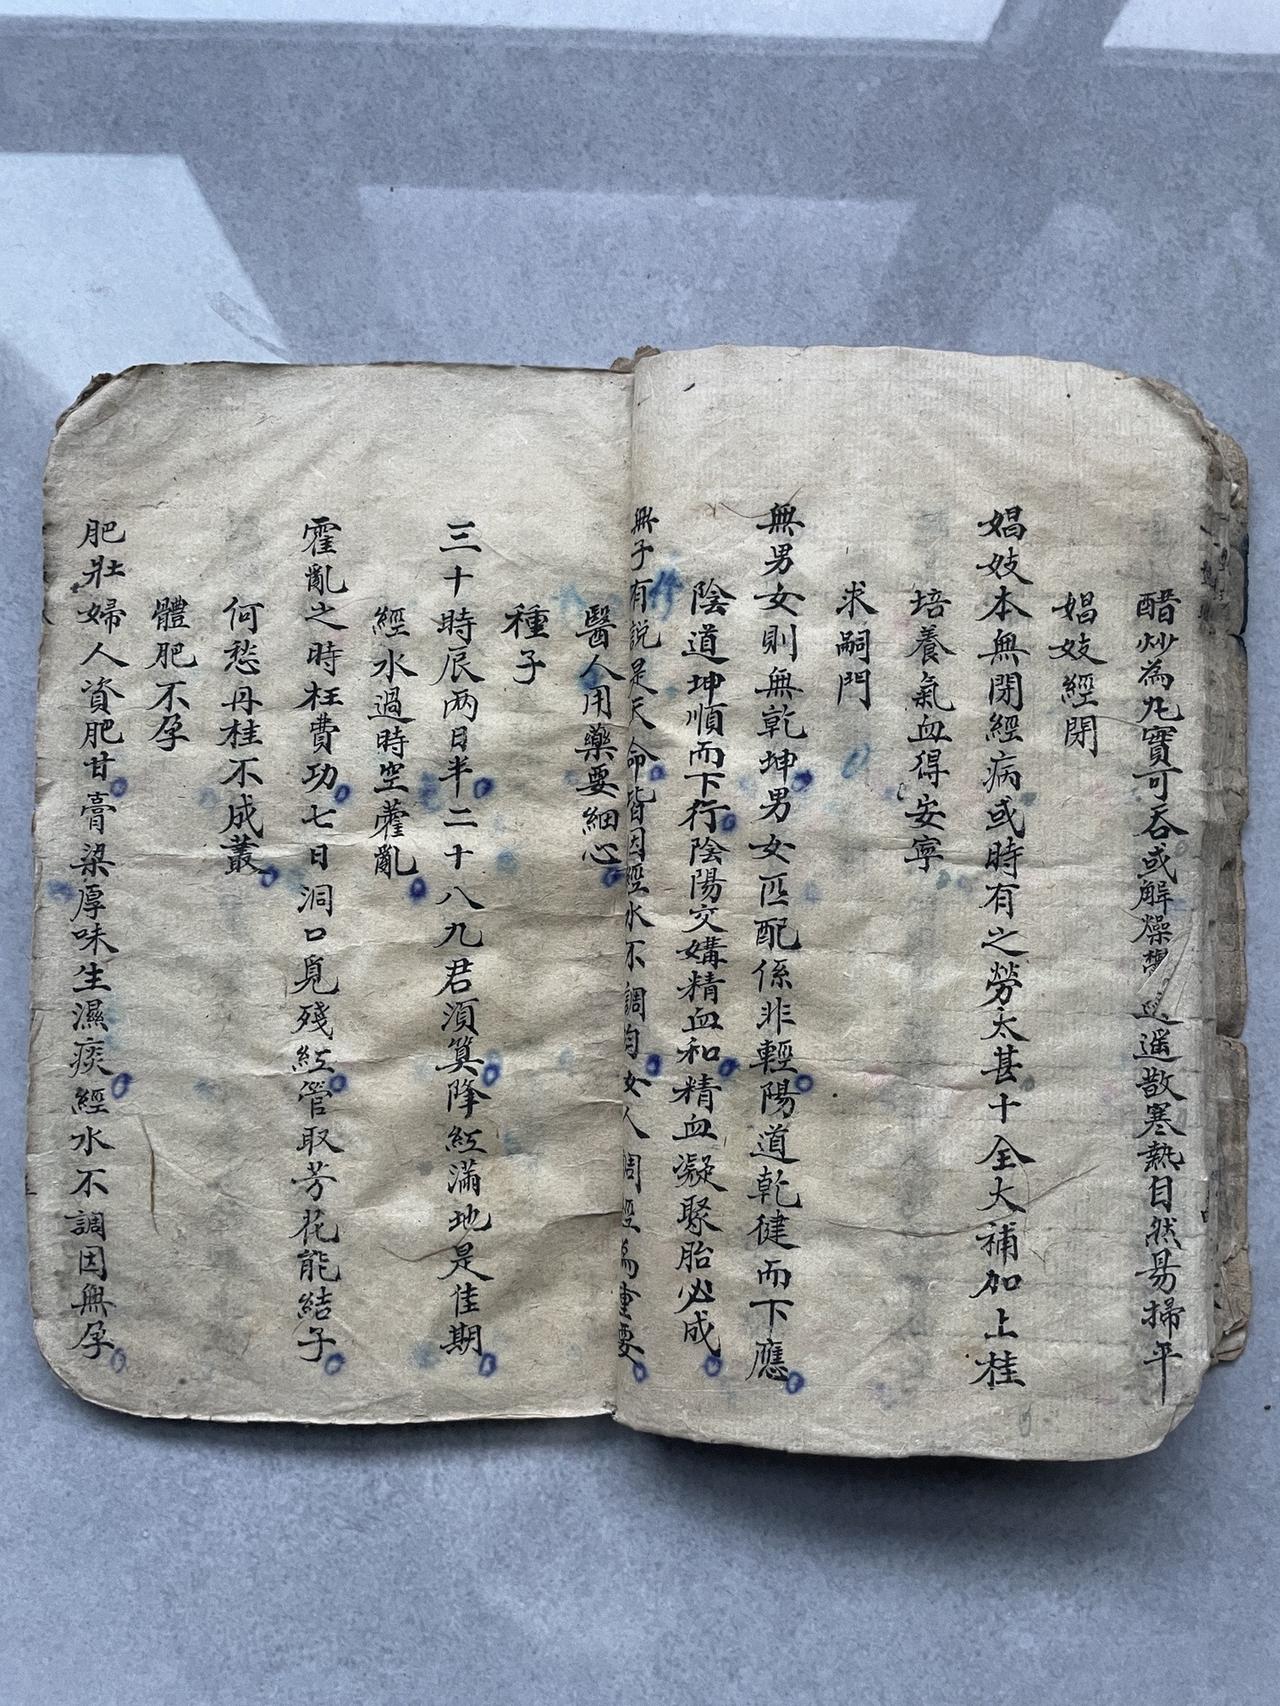 醋炒為丸實可吞或解燥 逍遥散寒熱自然易掃平
娼妓經閉
娼妓本無閉經病或時有之勞太甚十全大補加上桂
培養氣血得安寧
求嗣門
無男女則無乾坤男女匹配係非輕陽道乾健而下應
陰道坤順而下行陰陽交媾精血和精血凝聚胎必成
無子有說是天命皆因經水不調勻女人調經為重要
醫人用藥要細心
種子
三十時辰两日半二十八九君須算降紅滿地是佳期
經水過時空霍亂
霍亂之時枉費功七日洞口覓殘紅管取芳花能結子
何愁丹桂不成叢
體肥不孕
肥壯婦人資肥甘膏粱厚味生濕痰經水不調因無孕